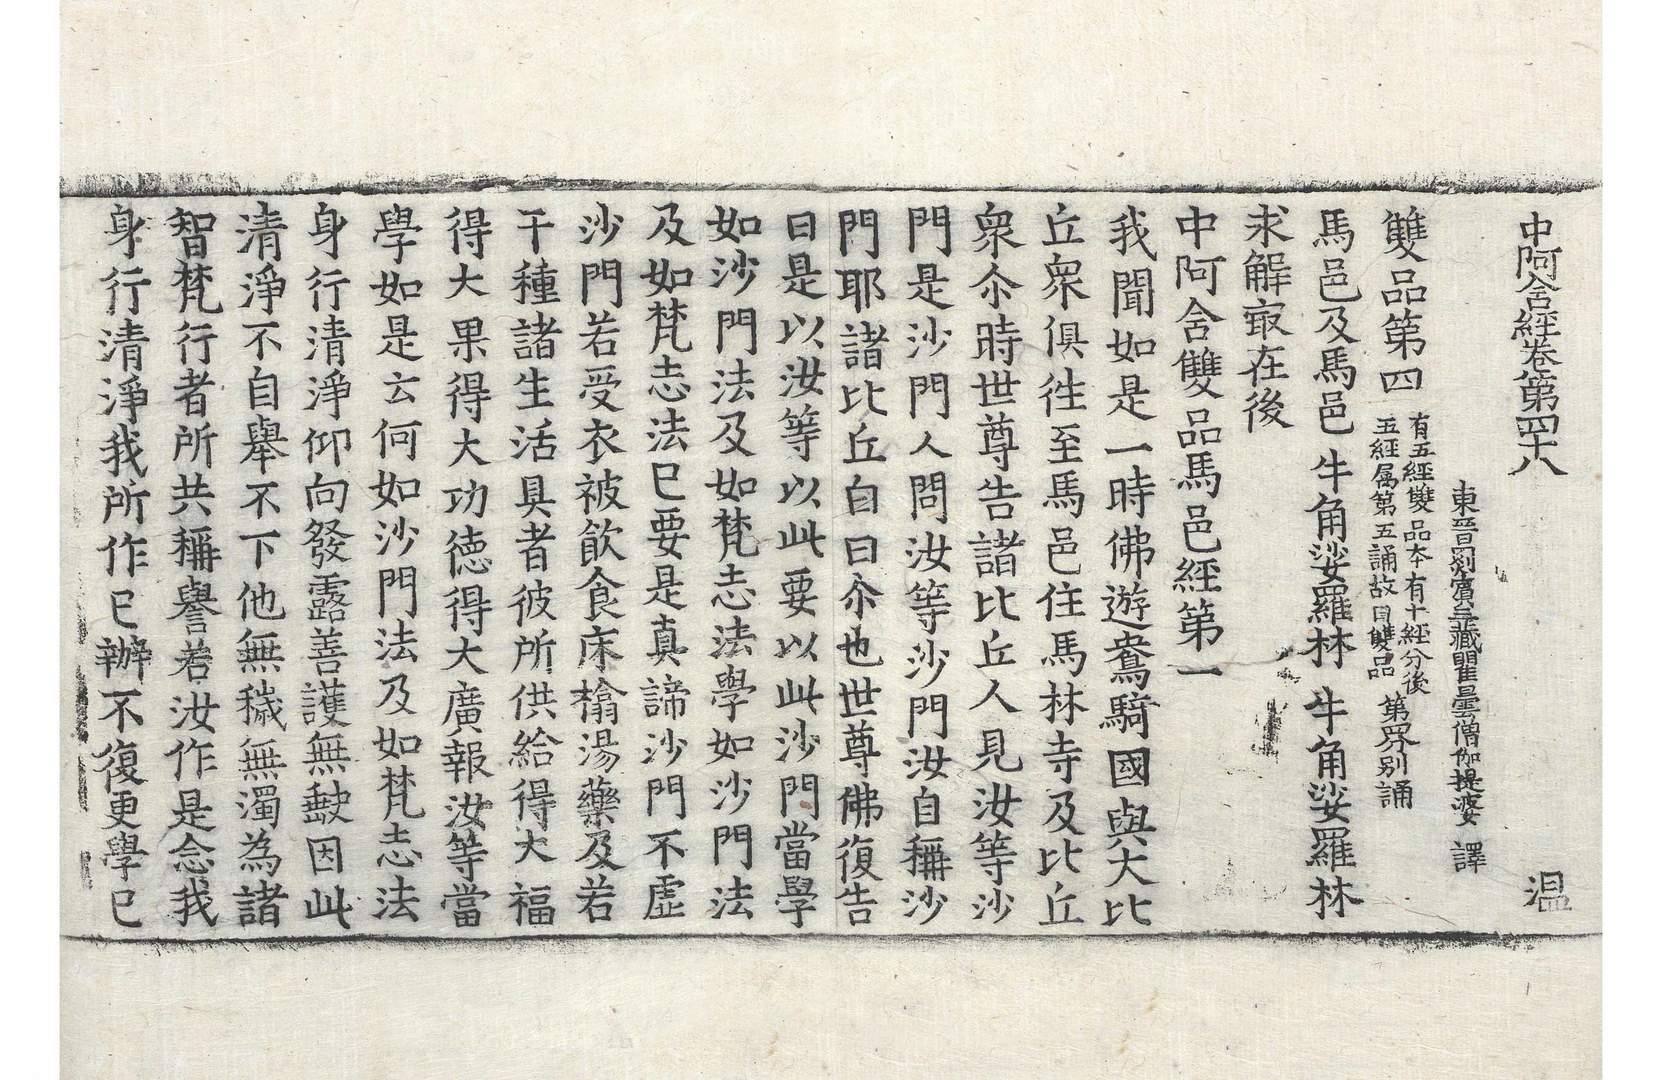 中阿含經卷第四十八 温
東晉罽賓三藏瞿曇僧伽提婆 譯
雙品第四 有五經雙品本有十經分後
五經属第五誦故曰雙品 第四分别誦
馬邑及馬邑 牛角娑羅林 牛角娑羅林
求解㝡在後
中阿含雙品馬邑經第一
我聞如是一時佛遊鴦騎國與大比
丘衆俱徃至馬邑住馬林寺及比丘
衆尒時世尊告諸比丘人見汝等沙
門是沙門人問汝等沙門汝自稱沙
門耶諸比丘白曰尒也世尊佛復告
曰是以汝等以此要以此沙門當學
如沙門法及如梵志法學如沙門法
及如梵志法已要是真諦沙門不虛
沙門若受衣被飲食床榻湯藥及若
干種諸生活具者彼所供給得大福
得大果得大功德得大廣報汝等當
學如是云何如沙門法及如梵志法
身行清淨仰向發露善護無𡙇因此
清淨不自舉不下他無穢無濁為諸
智梵行者所共稱譽若汝作是念我
身行清淨我所作已辦不復更學已